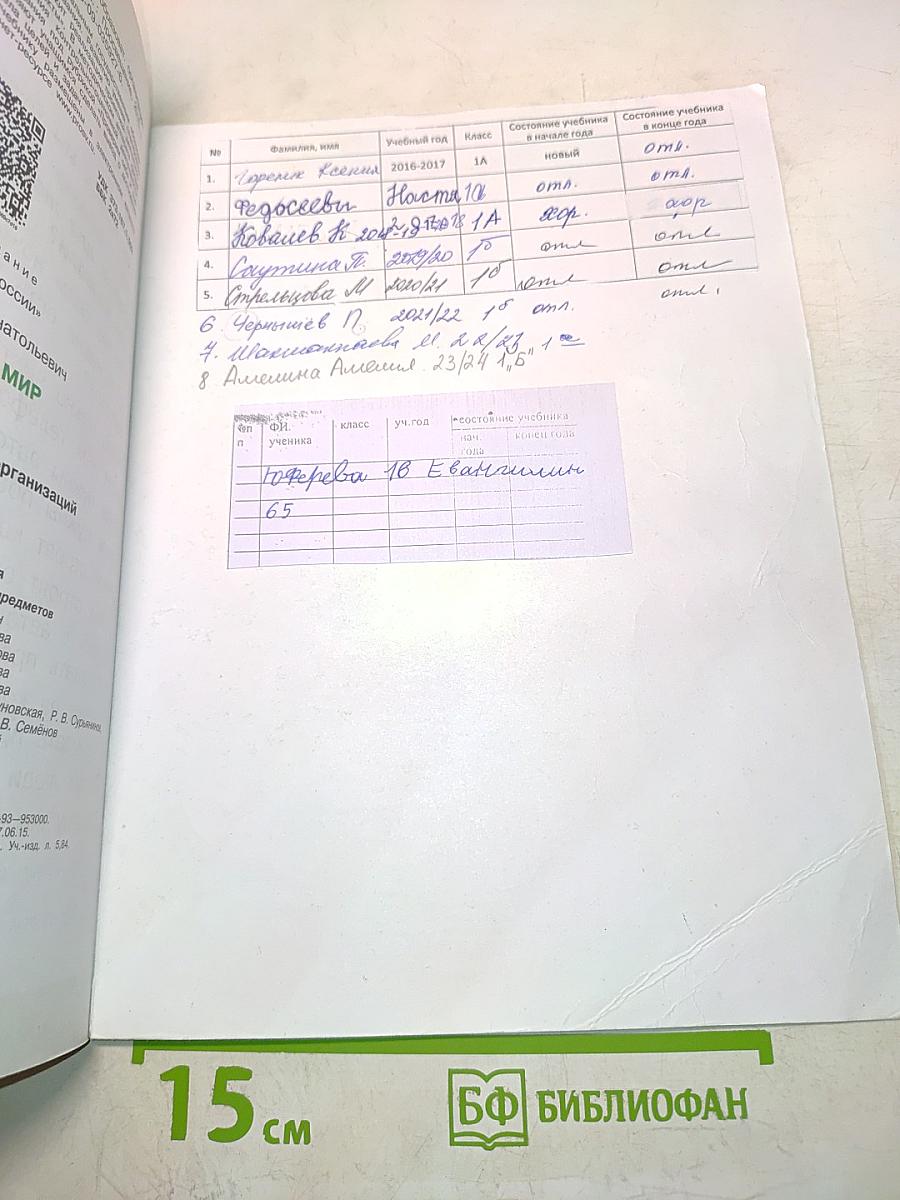 ресурсе www.prosv.ru
УДК
ание
оссии»
натольевич
МИР
рганизаций
редметов
ва
ова
ва
ва
уновская, Р. В. Сурьянинов
В. Семёнов
93—953000.
7.06.15.
Уч.-изд. л. 5,84.
№ Фамилия, имя Учебный год Класс Состояние учебника в начале года Состояние учебника в конце года
1. Горелик Ксения 2016-2017 1А новый отл.
2. Федосеевы Настя отл. отл.
3. Ковалев К 1А хор. хор
4. Саутина П. 2019/20 1б отл отл
5. Стрельцова М 2020/21 1б отл отл
6. Чернышёв П. 2021/22 1б отл. отл.
7. М. 22/23 1
8 Амелина Амелия. 23/24 1„Б"
ФИ. класс уч.год состояние учебника
п ученика нач. конец года
года
Юферева 1В Евангилин
65
15 см
БФ БИБЛИОФАН